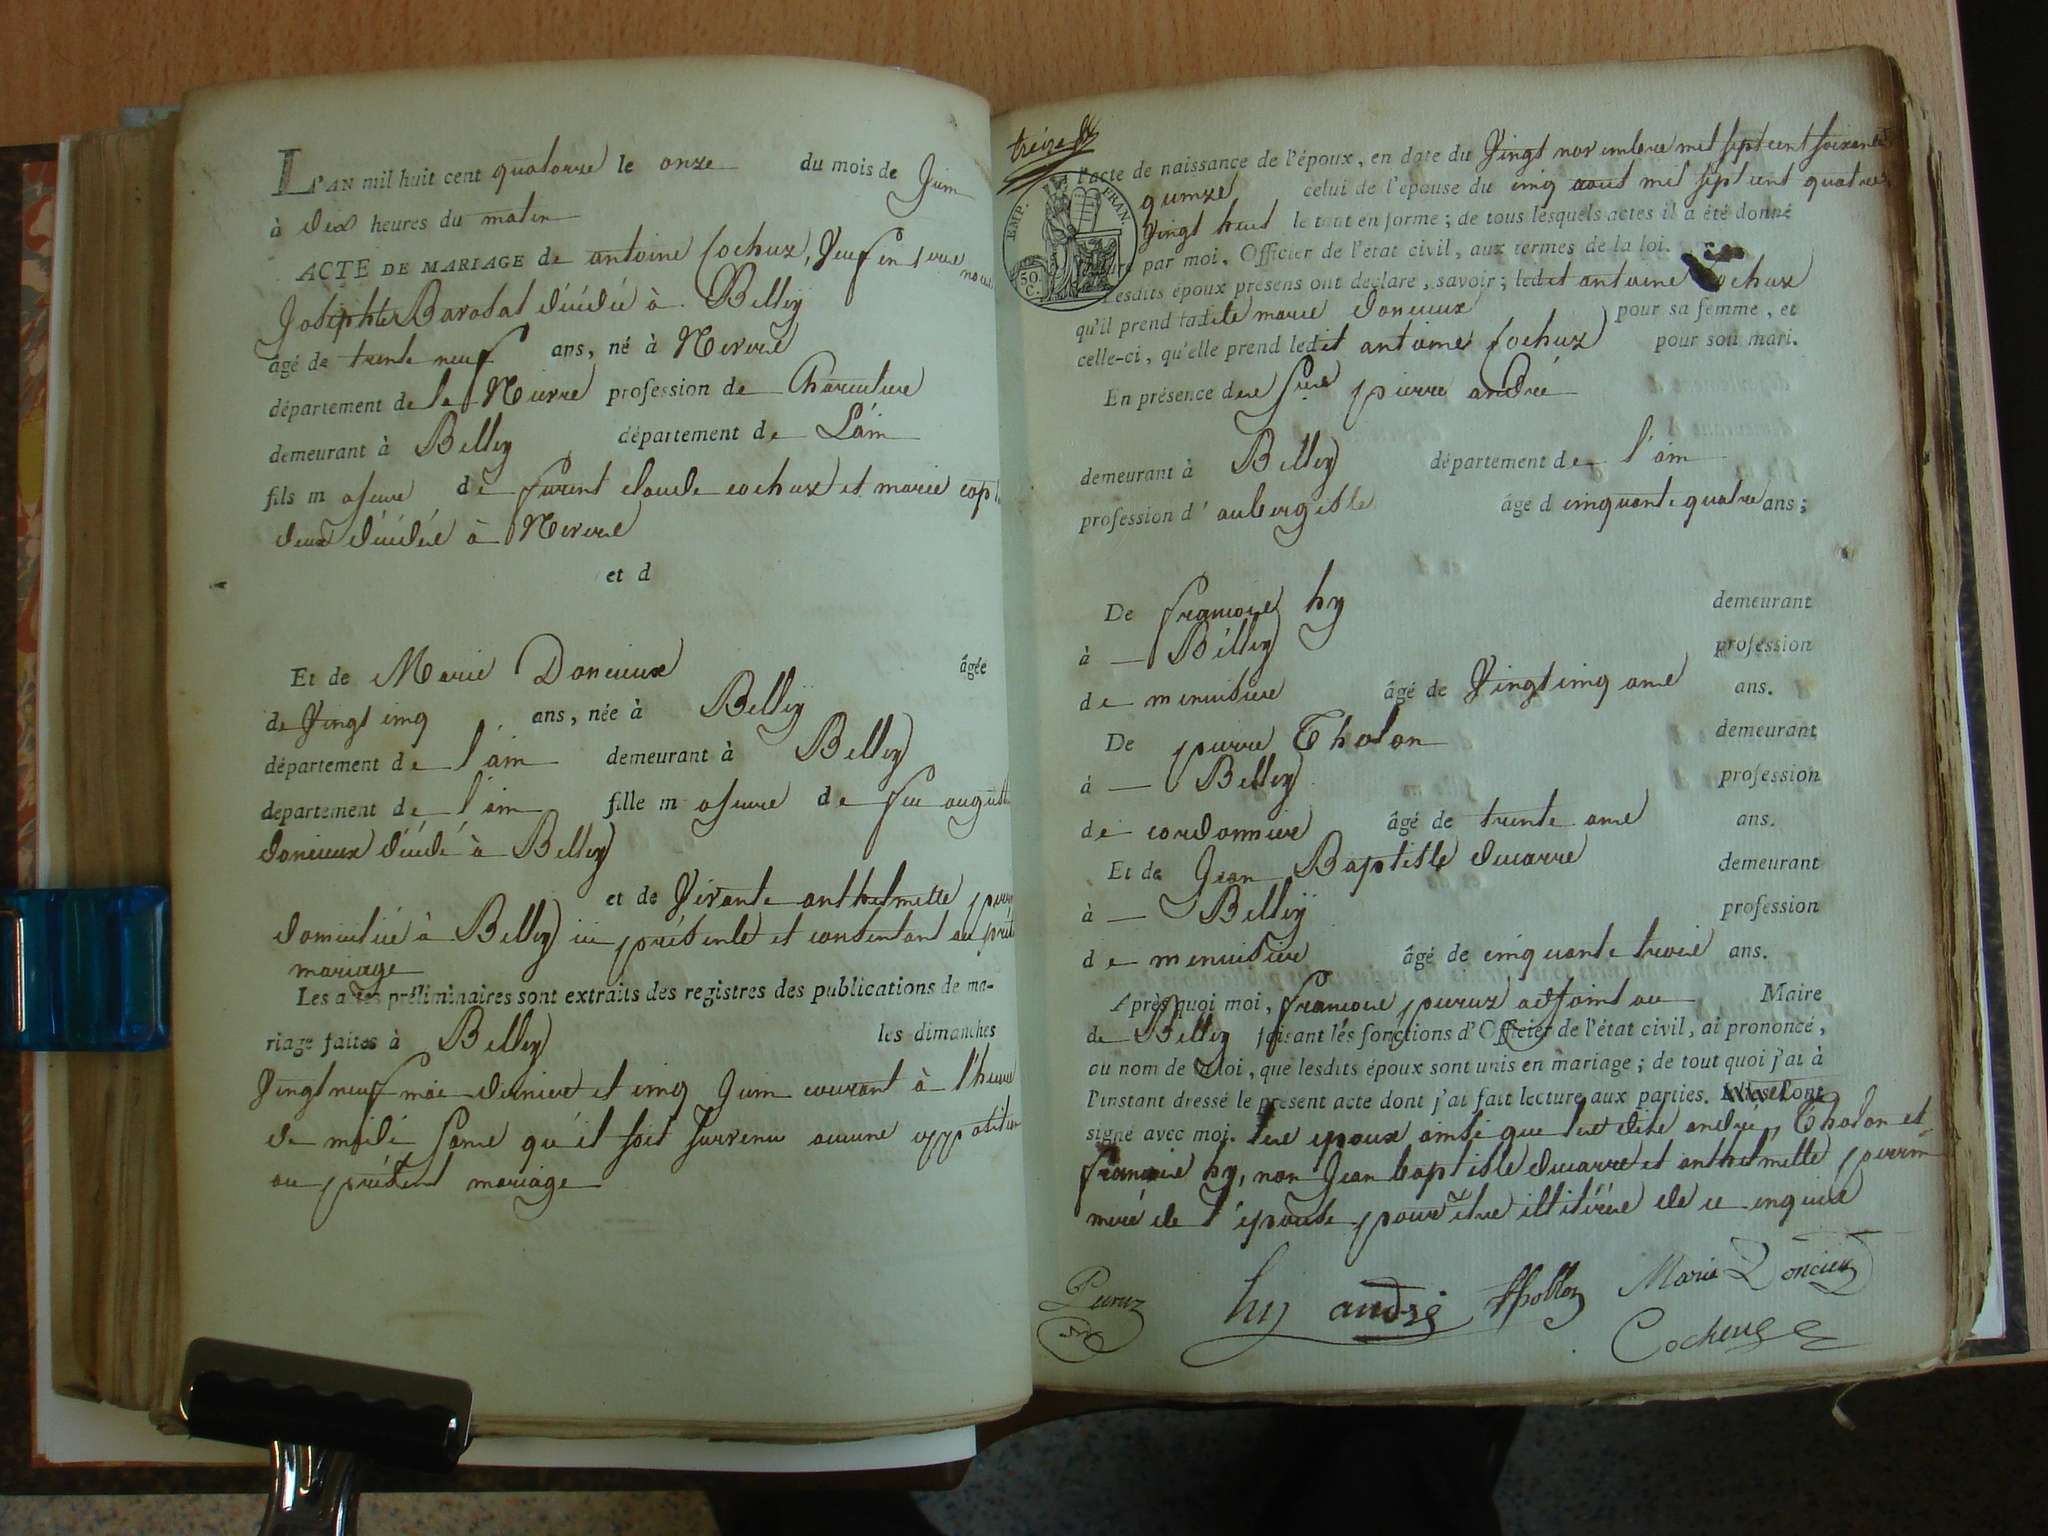 L'AN mil huit cent quatorze le onze du mois de Juin
à dix heures du matin
ACTE DE MARIAGE de antoine Cochux, Veuf en
Josephte décédée à Belley
âgé de trente neuf ans, né à Neverse
département de la Nievre profession de Charcutier
demeurant à Belley département de L'ain
fils majeur de furent claude cochux et marie
deux décédés à Neverse
et d
Et de Marie Doncieux âgée
de Vingt cinq ans, née à Belley
département de l'ain demeurant à Belley
département de l'ain fille majeure de feu august
doncieux décédé à Belley
et de Vivante anthelmette
domiciliée à Belley ici présente et consentant au
mariage
Les actes préliminaires sont extraits des registres des publications de ma-
riage faites à Belley les dimanches
Vingt neuf mai dernier et cinq Juin courant à l'heure
de midi sans qu'il soit survenu aucune opposition
au présent mariage
treize
l'acte de naissance de l'époux, en date du Vingt novembre mil sept cent soixante
EMP. FRAN.
50 C.
quinze celui de l'epouse du cinq aout mil sept cent quatre
Vingt huit le tout en forme; de tous lesquels actes il a été donné
par moi, Officier de l'état civil, aux termes de la loi.
Lesdits époux présens ont declare, savoir; ledit antoine Cochux
qu'il prend ladite marie doncieux pour sa femme, et
celle-ci, qu'elle prend ledit antoine Cochux pour son mari.
En présence des pierre andré
demeurant à Belley département de l'ain
profession d'aubergiste âgé d cinquante quatre ans;
De francois hy demeurant
à Belley profession
de menuisier âgé de Vingt cinq ans ans.
De pierre Tholon demeurant
à Belley profession
de cordonnier âgé de trente ans ans.
Et de Jean Baptiste ducarre demeurant
à Belley profession
de menuisier âgé de cinquante trois ans.
Après quoi moi, francois peruz adjoint au Maire
de Belley faisant les fonctions d'Officier de l'état civil, ai prononcé,
au nom de la loi, que lesdits époux sont unis en mariage; de tout quoi j'ai à
l'instant dressé le présent acte dont j'ai fait lecture aux parties.
signé avec moi. les epoux ainsi que les dits andré, Tholon et
francois hy, non Jean baptiste ducarre et anthelmette perrin
mere de l'epouse pour etre illitérés de ce enquis
Peruz
hy andré Thollon Marie Doncieux
Cocheux